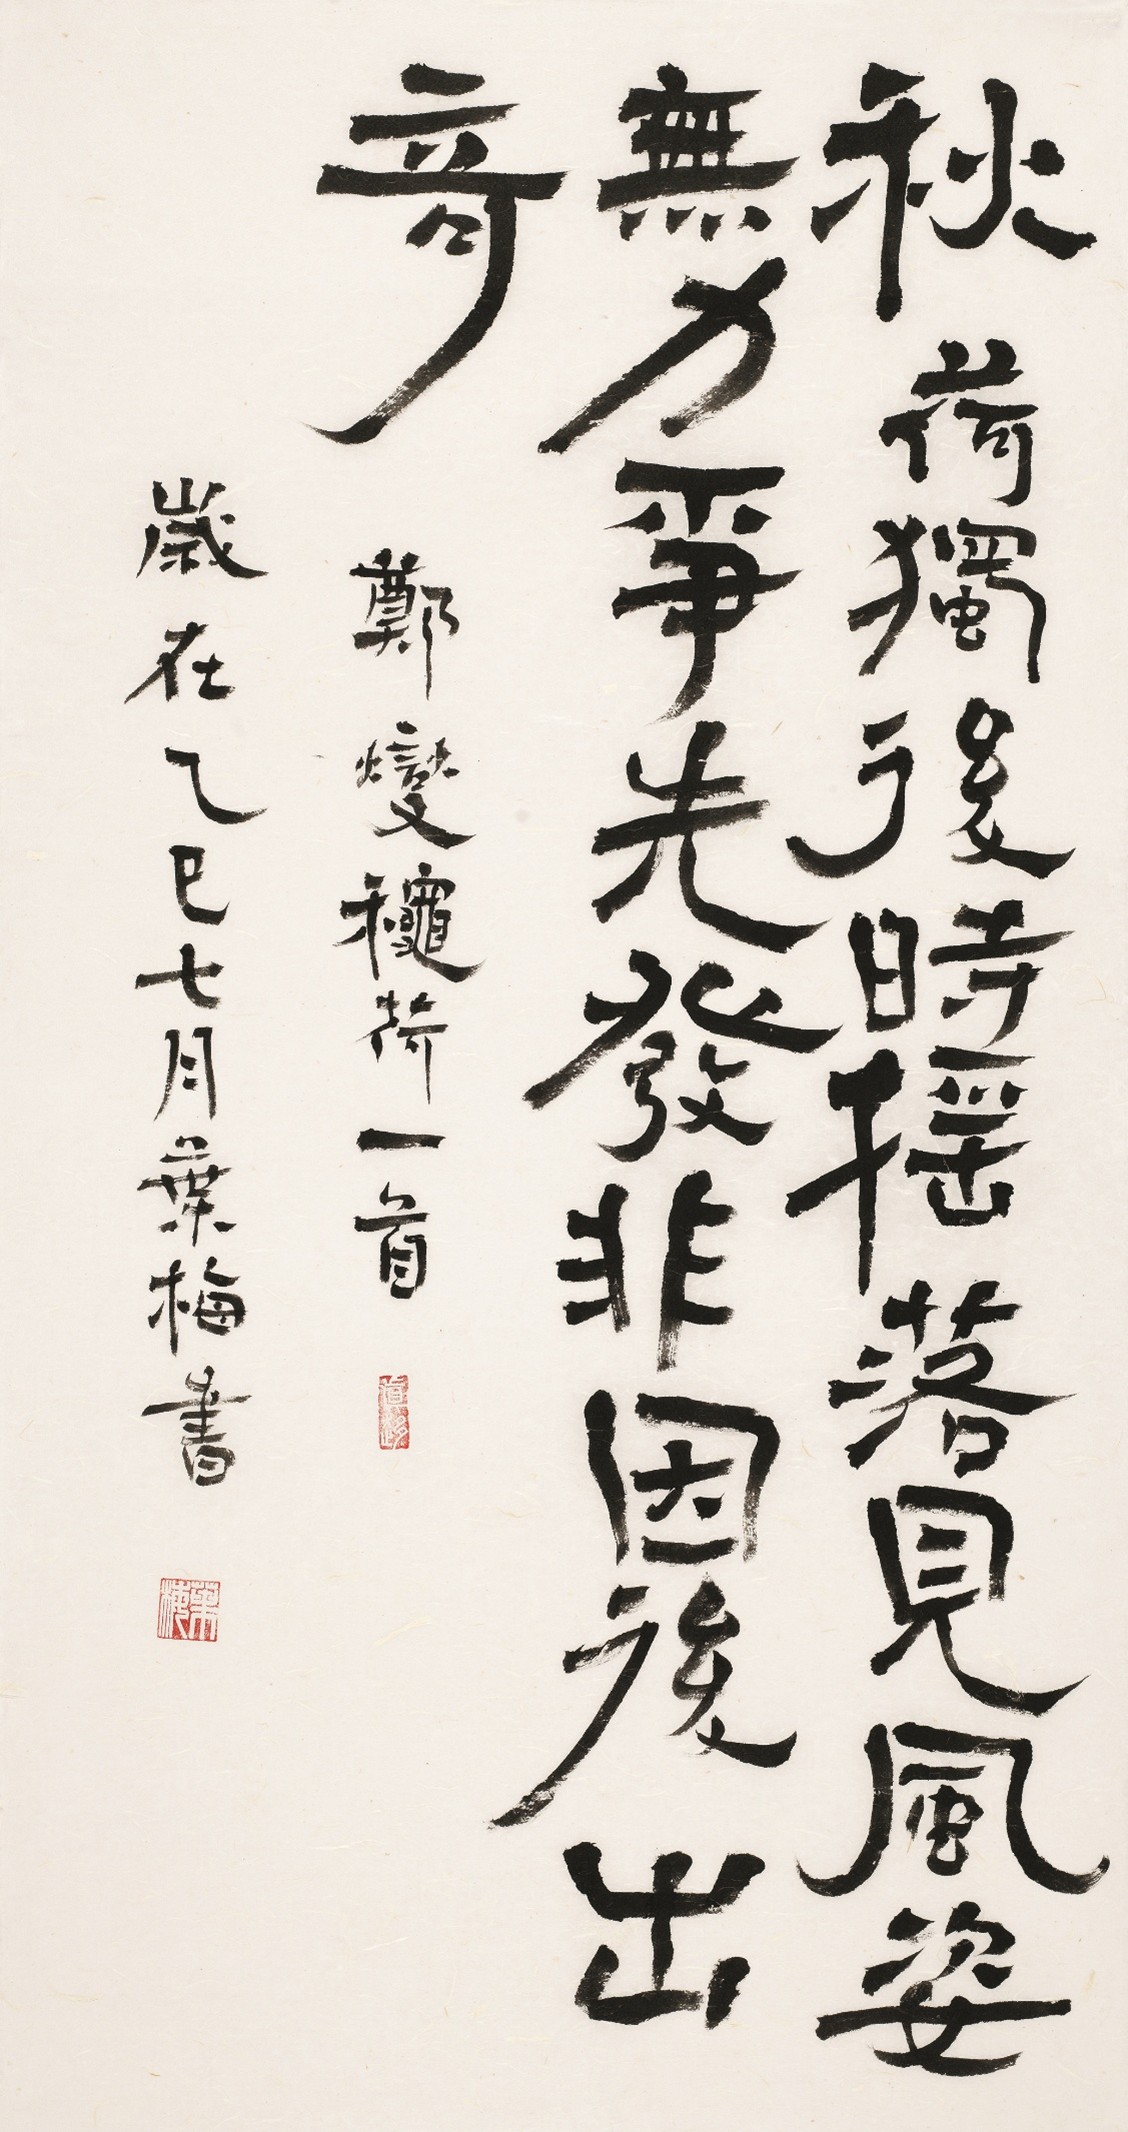 秋荷獨後時搖落見風姿
無力爭先發非因後出
奇
鄭燮龝荷一首
歲在乙巳七月葉梅書
葉梅